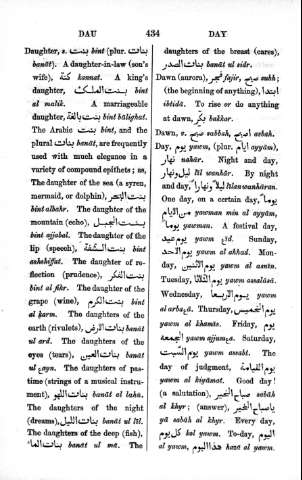 DAU 434 DAY
Daughter, s. بنت bint (plur. بنات
banāt). A daughter-in-law (son's
wife), كنة kannat. A king's
daughter, بنت الملك bint
al malik. A marriageable
daughter, بنت بالغة bint bālighat.
The Arabic بنت bint, and the
plural بنات banāt, are frequently
used with much elegance in a
variety of compound epithets; as,
The daughter of the sea (a syren,
mermaid, or dolphin), بنت البحر
bint albahr. The daughter of the
mountain (echo), بنت الجبل
bint aljabal. The daughter of the
lip (speech), بنت الشفة bint
ashshiffat. The daughter of re-
flection (prudence), بنت الفكر
bint al fikr. The daughter of the
grape (wine), بنت الكرم bint
al karm. The daughters of the
earth (rivulets), بنات الارض banāt
ul ard. The daughters of the
eyes (tears), بنات العين banāt
ul عayn. The daughters of pas-
time (strings of a musical instru-
ment), بنات اللهو banāt al lahu.
The daughters of the night
(dreams), بنات الليل banāt ul līl.
The daughters of the deep (fish),
بنات الماء banāt ul mā. The
daughters of the breast (cares),
بنات الصدر banāt ul sidr.
Dawn (aurora), فجر fajir, صبح subh;
(the beginning of anything), ابتدا
ibtidā. To rise or do anything
at dawn, بكر bakkar.
Dawn, v. صبح sabbah, اصبح asbah.
Day, يوم yawm, (plur. ايام ayyām),
نهار nahār. Night and day,
ليل ونهار līl wanhār. By night
and day, ليلا ونهارا līlan wanhāran.
One day, on a certain day, يوم
من الايام yawman min al ayyām,
يوما yawman. A festival day,
يوم عيد yawm عīd. Sunday,
يوم الاحد yawm al ahhad. Mon-
day, يوم الاثنين yawm al asnīn.
Tuesday يوم الثلاثا yawm asalāsā.
Wednesday, يوم الاربعا yawm
al arbaعā. Thursday, يوم الخميس
yawm al khamās. Friday, يوم
الجمعة yawm aljumعa. Saturday,
يوم السبت yawm assabt. The
day of judgment, يوم القيامة
yawm al kiyāmat. Good day!
(a salutation), صباح الخير sabāh
al khyr; (answer), يا صباح الخير
yā sabāh al khyr. Every
day, كل يوم kal yawm. To-day,
اليوم al yawm, هذا اليوم hazā al yawm.